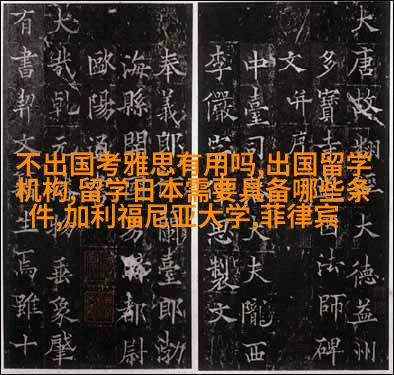 不出国考雅思有用吗,出国留学
机构,留学日本需要具备哪些条
件,加利福尼亚大学,菲律宾
大唐故翻大德益州
多寶寺因法師碑
文并序
中臺司大夫隴西
李儼製文
奉義郎蘭臺郎渤
海縣開騎都尉
歐陽通
大哉乾元垂象肇
有書契文生焉雖十